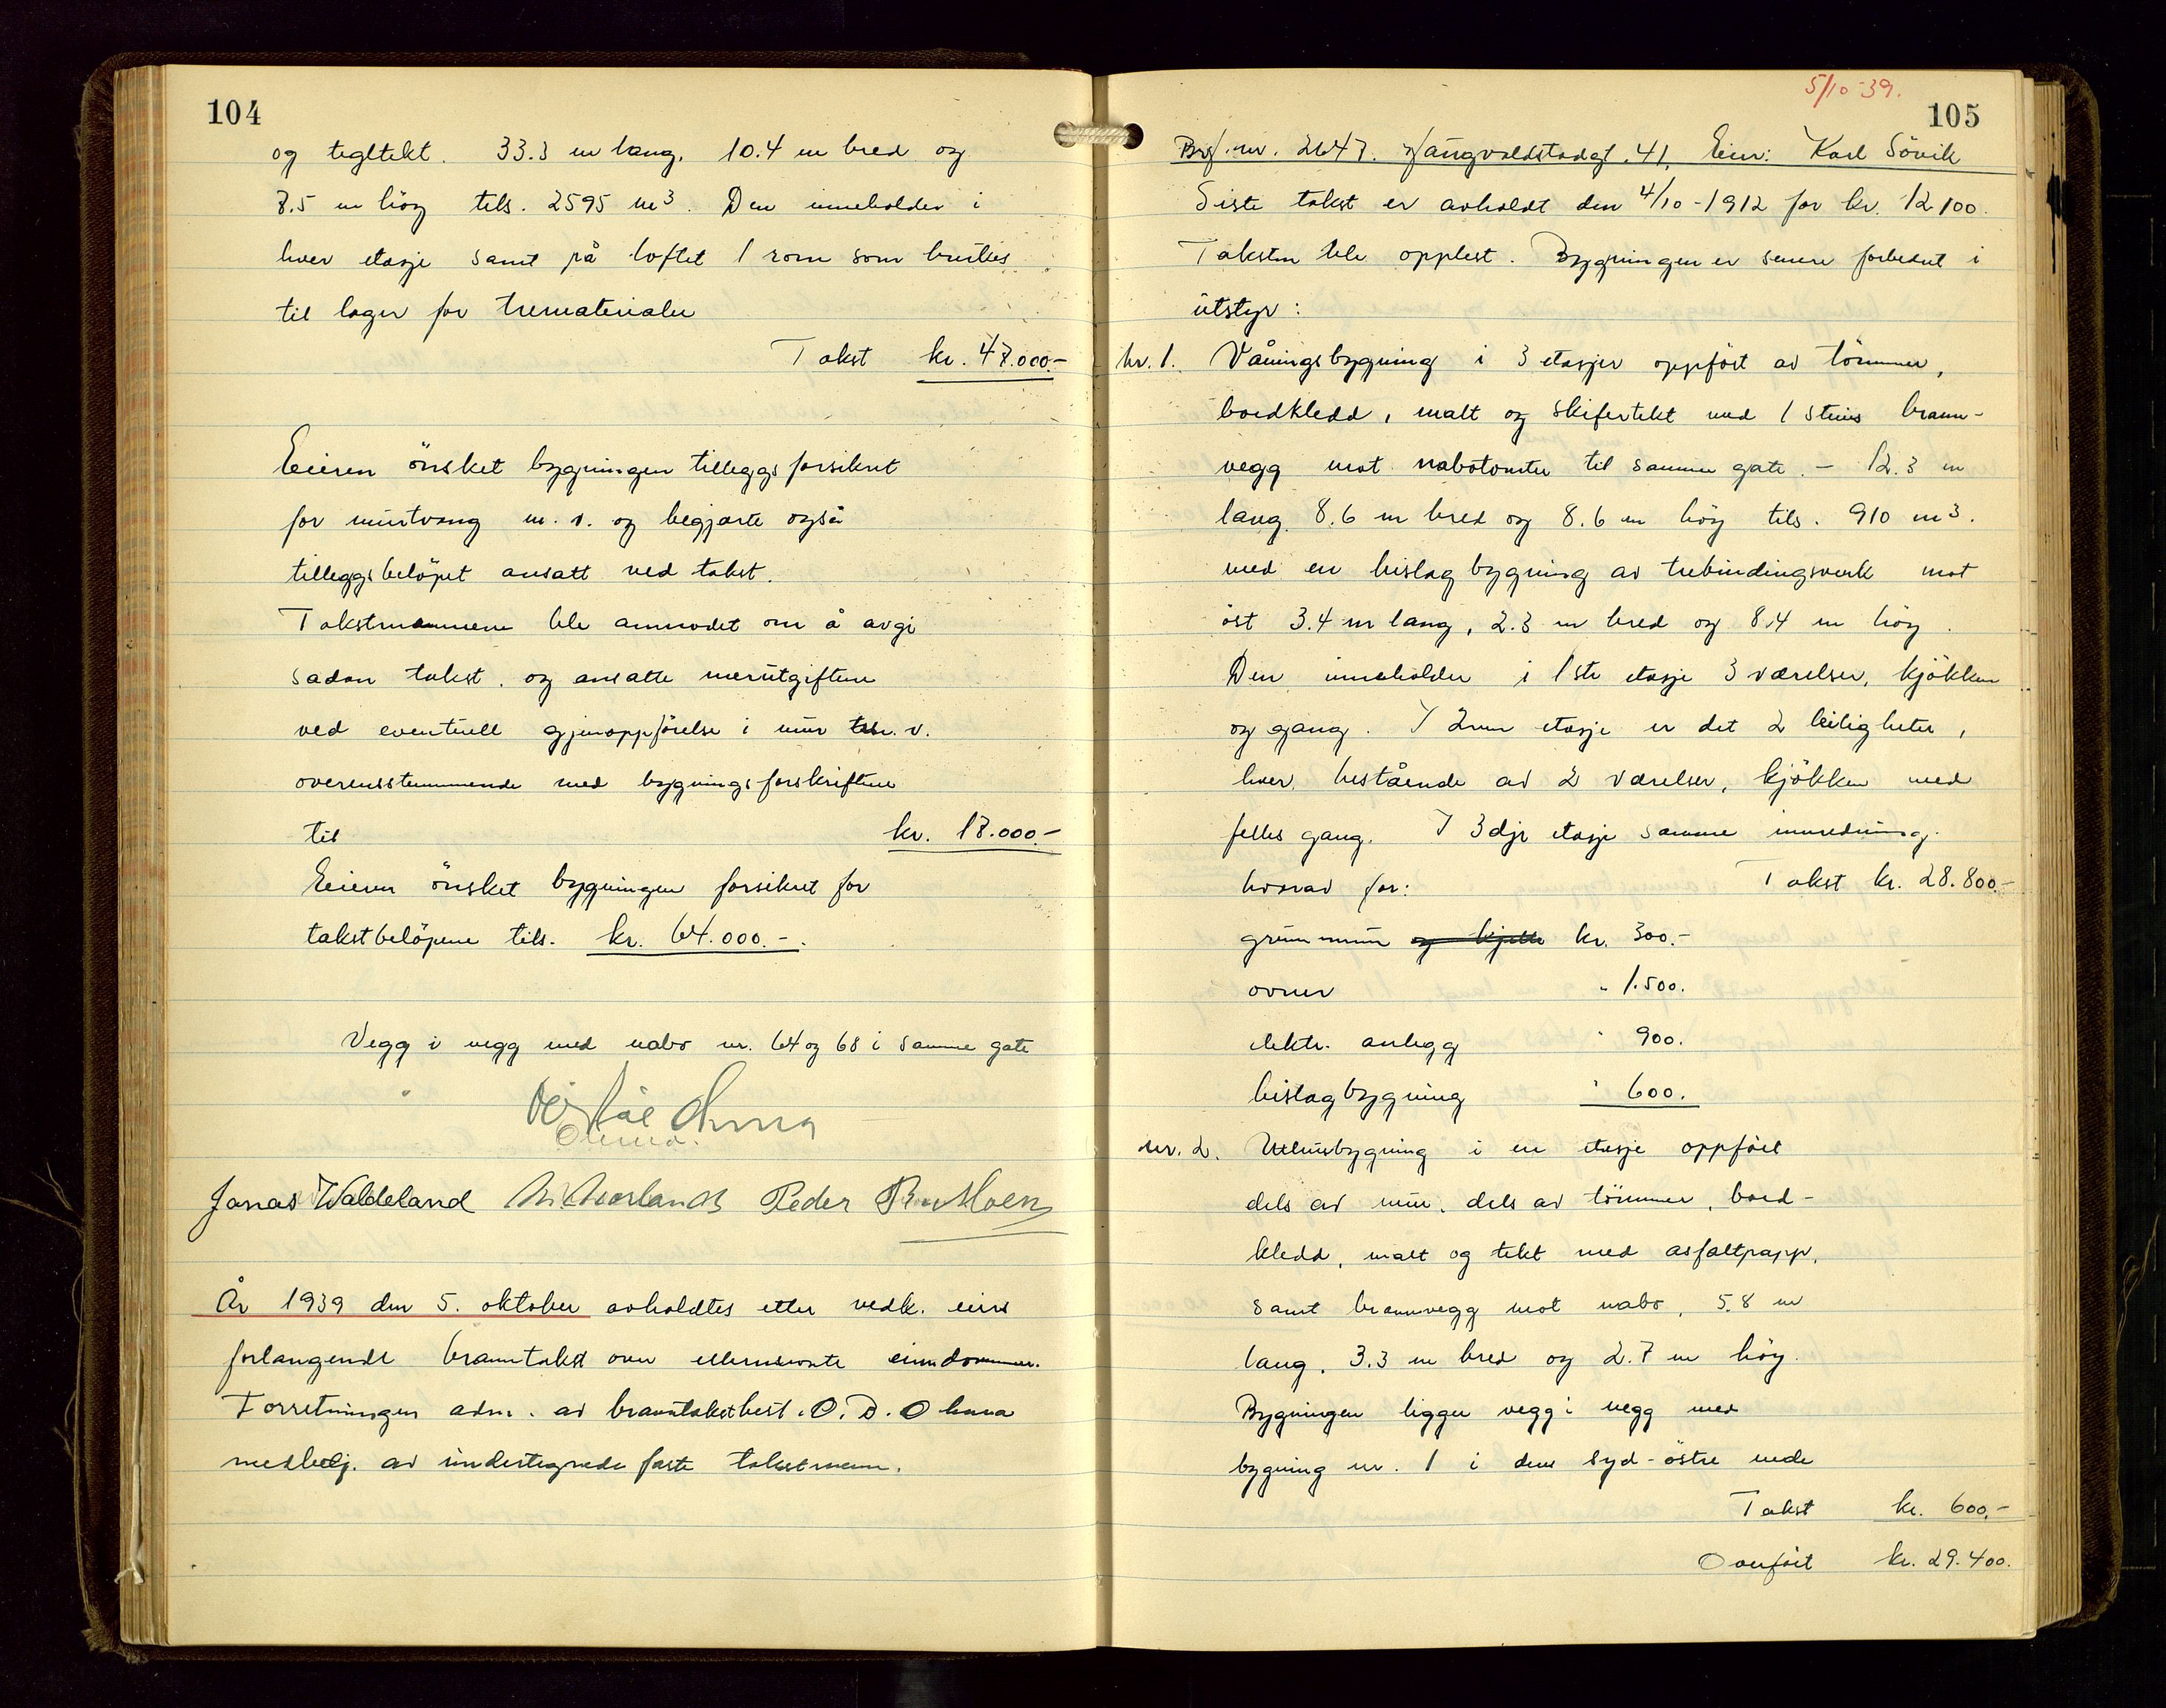 104
og tegltekt. 33.3 m lang, 10.4 m bred og
7.5 m höy tils. 2595 m³. Den inneholder i
hver etasje samt på loftet 1 rom som brukes
til lager for trematerialer
Takst kr. 47.000.-
Eieren önsket bygningen tilleggsforsikret
for murtvang m. v. og begjærte også
tilleggsbelöpet ansatt ved takst.
Takstmennene ble anmodet om å avgi
sådan takst, og ansatte merutgiftene
ved eventuell gjenoppförelse i mur m. v.
overensstemmende med bygningsforskriftene
til kr. 17.000.-
Eieren önsket bygningen forsikret for
takstbelöpene tils. kr. 64.000.-.
Vegg i vegg med nabo nr. 64 og 68 i samme gate
Jonas Waldeland Peder
År 1939 den 5. oktober avholdtes etter vedk. eiers
forlangende branntakst over ellernevnte eiendommer.
Forretningen adm. av branntakstbest. O. D. Ohma
medhelj. av undertegnede faste takstmenn.
5/10-39.
105
Brf. nr. 2647. Haugvaldstadgt. 41, Eier: Karl Sövik
Siste takst er avholdt den 4/10-1912 for kr. 12100.
Taksten ble opplest. Bygningen er senere forbedret i
utstyr:
nr. 1. Våningsbygning i 3 etasjer oppfört av tömmer,
bordkledd, malt og skifertekt med 1 steins brann-
vegg mot nabotomter til samme gate. - 12.3 m
lang, 8.6 m bred og 8.6 m höy tils. 910 m³.
med en bislagbygning av trebindingsverk mot
öst 3.4 m lang, 2.3 m bred og 8.4 m höy.
Den inneholder i 1ste etasje 3 værelser, kjökken
og gang. I 2nen etasje er det 2 leiligheter,
hver bestående av 2 værelser, kjökken med
felles gang. I 3dje etasje samme innredning.
hvorav for: Takst kr. 28.800.-
grunnmur og kjeller kr. 300.-
ovner " 1.500.
elektr. anlegg " 900.
bislagbygning " 600.
nr. 2. Uthusbygning i en etasje oppfört
dels av mur, dels av tömmer, bord-
kledd, malt og tekt med asfaltpapp,
samt brannvegg mot nabo, 5.8 m
lang, 3.3 m bred og 2.7 m höy.
Bygningen ligger vegg i vegg med
bygning nr. 1 i dens syd-östre ende
Takst kr. 600.-
Overfört kr. 29.400.